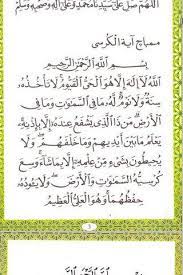 اللهم صل على سيدنا محمد وعلى آله وصحبه وسلم
آية الكرسي
بِسْمِ اللهِ الرَّحْمٰنِ الرَّحِيمِ
اَللهُ لَا إِلٰهَ إِلَّا هُوَ الْحَيُّ الْقَيُّومُ لَا تَأْخُذُهُ
سِنَةٌ وَلَا نَوْمٌ لَهُ مَا فِي السَّمٰوَاتِ وَمَا فِي
الْأَرْضِ مَنْ ذَا الَّذِي يَشْفَعُ عِنْدَهُ إِلَّا بِإِذْنِهِ
يَعْلَمُ مَا بَيْنَ أَيْدِيهِمْ وَمَا خَلْفَهُمْ وَلَا
يُحِيطُونَ بِشَيْءٍ مِنْ عِلْمِهِ إِلَّا بِمَا شَاءَ وَسِعَ
كُرْسِيُّهُ السَّمٰوَاتِ وَالْأَرْضَ وَلَا يَؤُدُهُ
حِفْظُهُمَا وَهُوَ الْعَلِيُّ الْعَظِيمُ